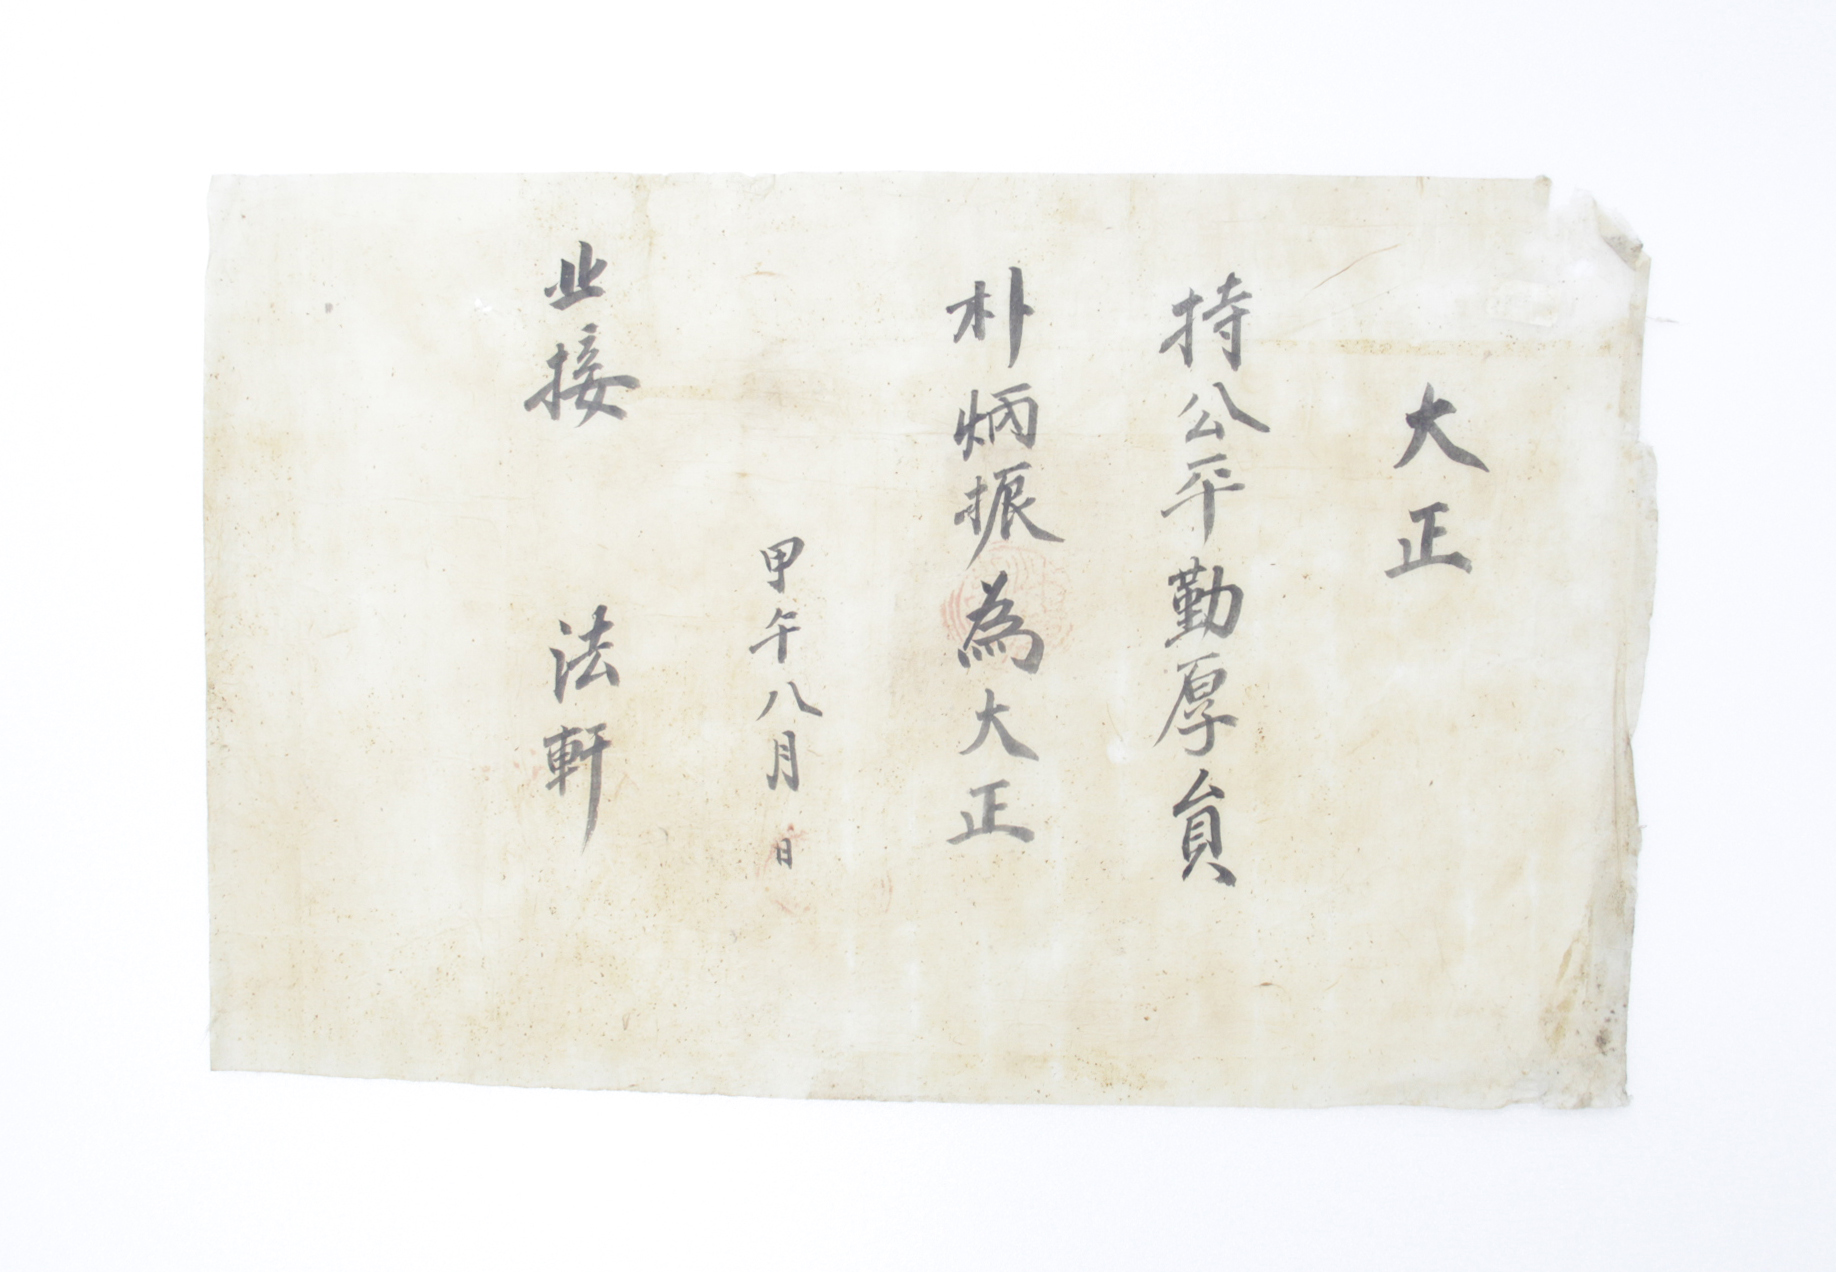 大正
持公平勤厚員
朴炳振為大正
甲午八月 日
北接 法軒